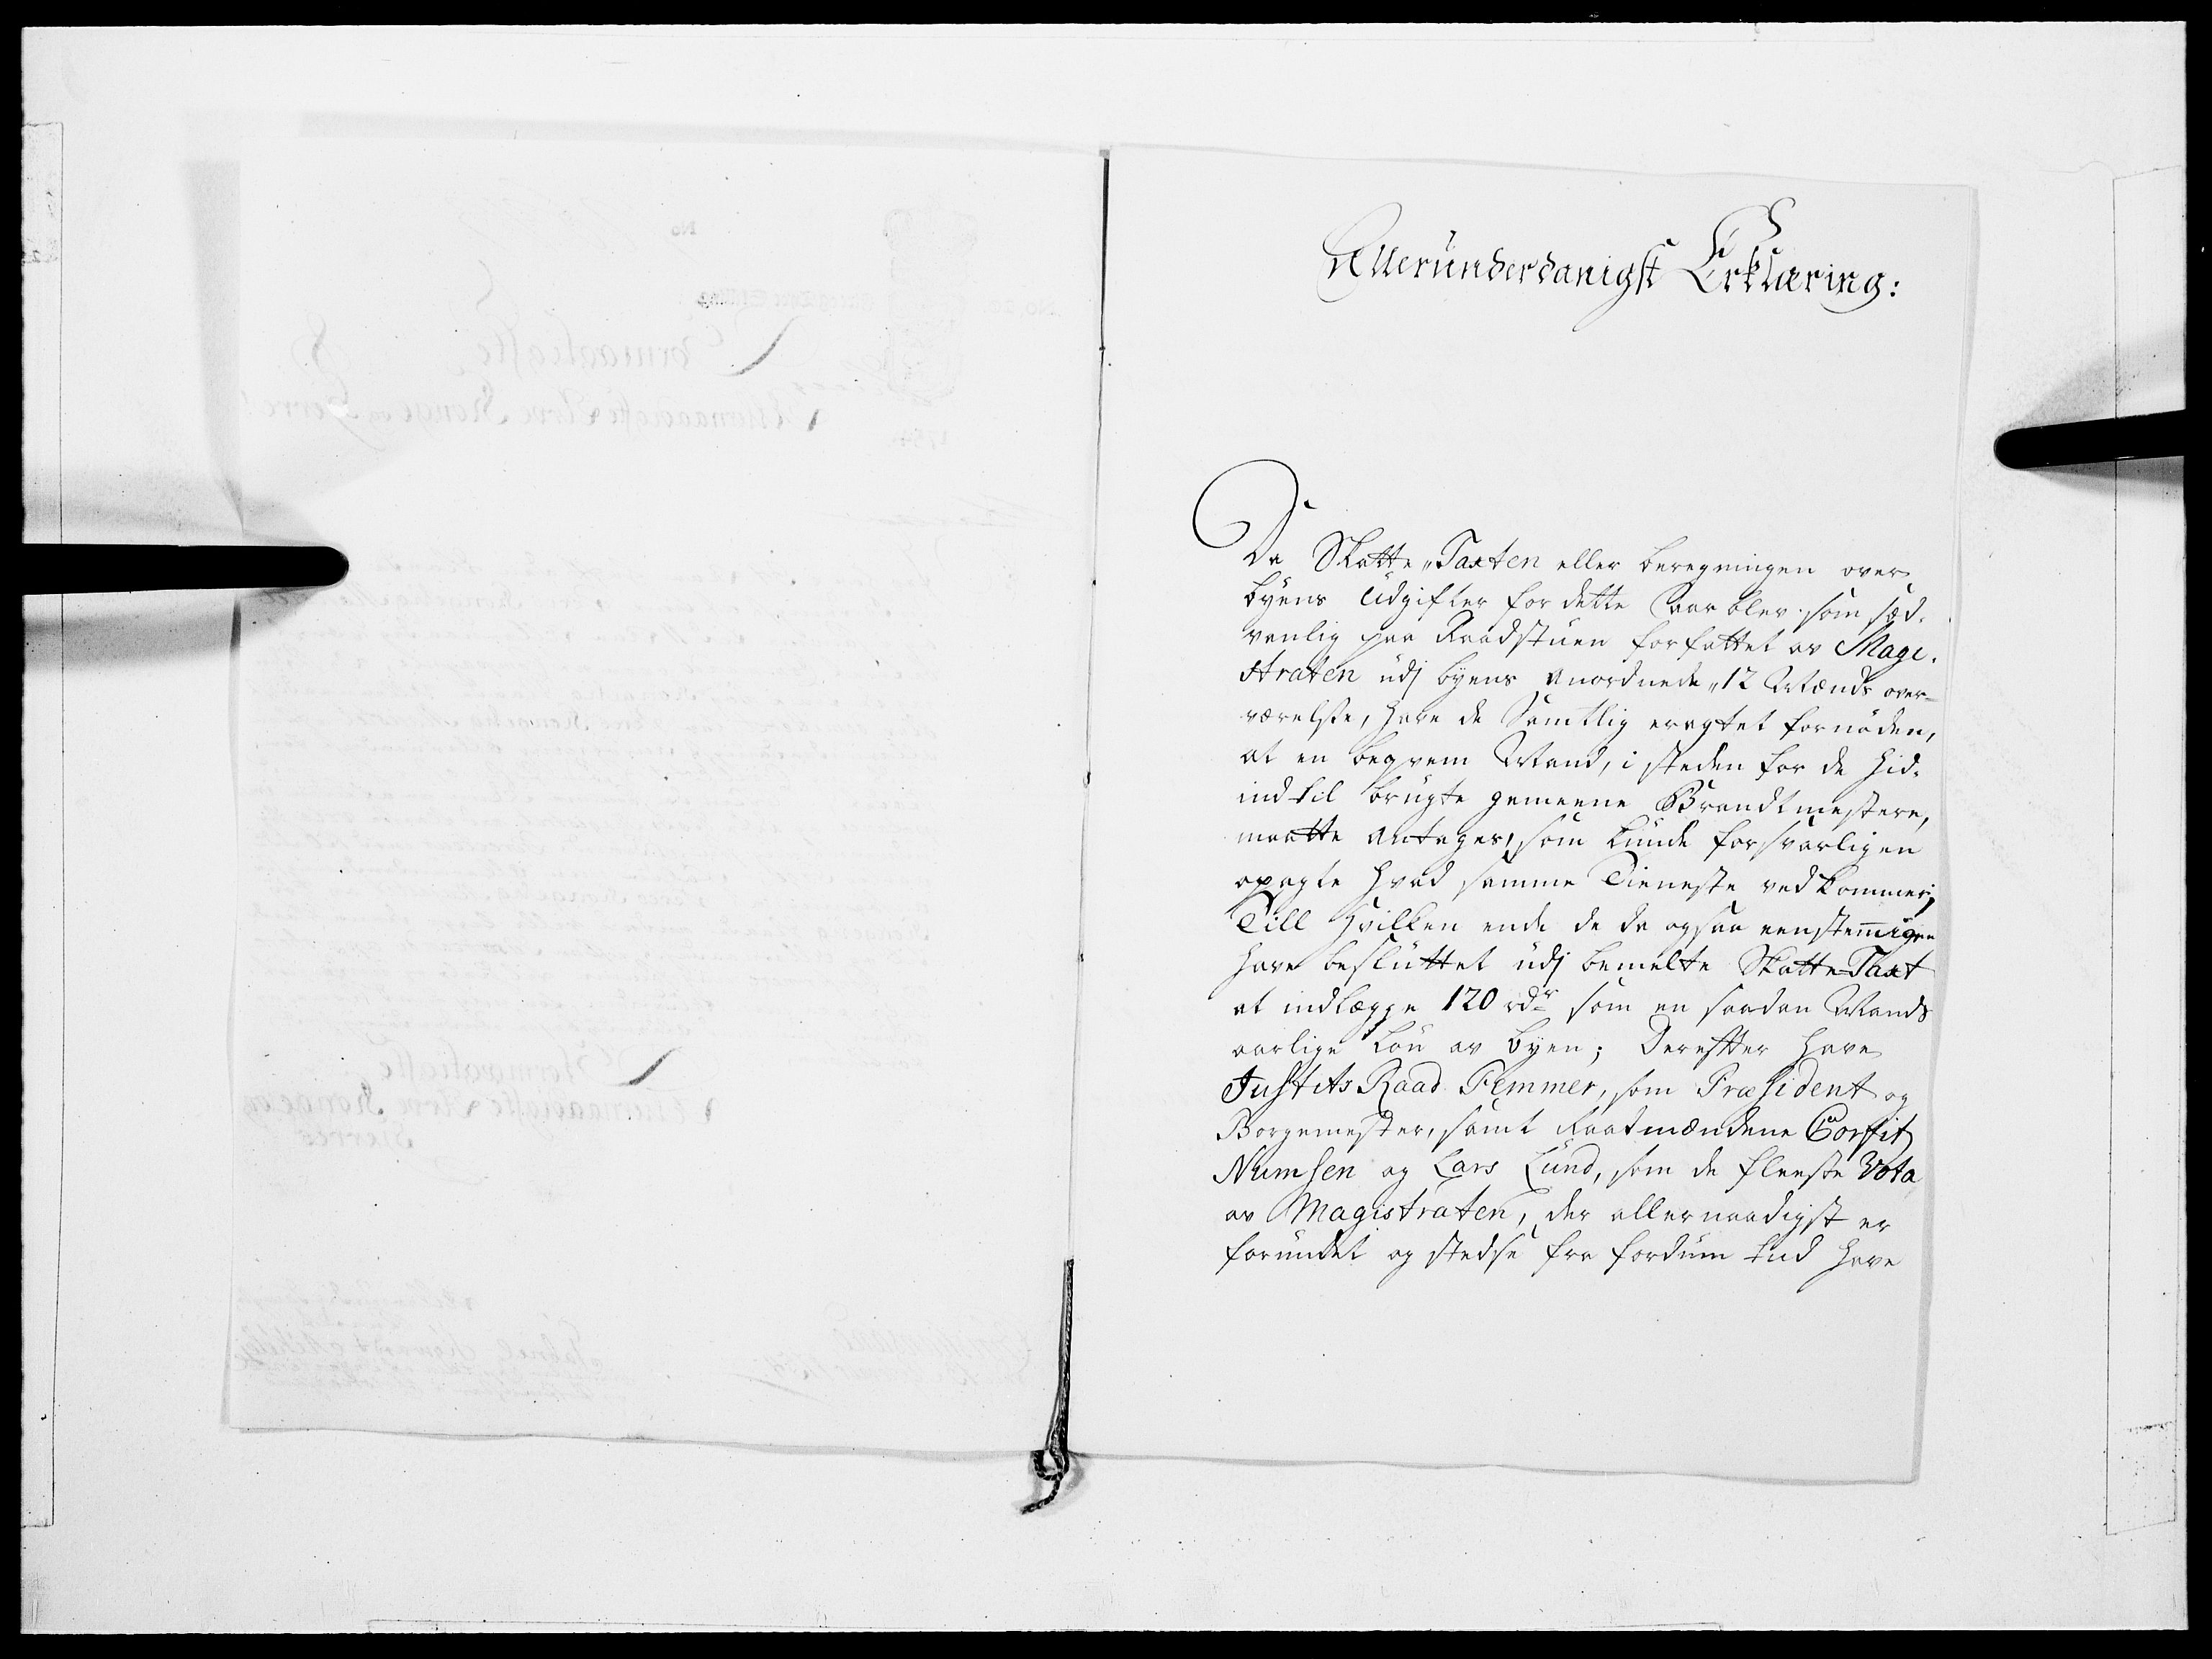 Alleründerdanigst Erklæring:
Da Skatte-Taxten eller beregningen over
byens Udgifter for dette Aar blev som sæd-
vanlig paa Raadstüen forfattet av Magi-
straten udj byens anordnede 12 Mænds over-
værelsse, have de Samtlig eragtet fornöden,
at en beqvem Mand, i steden for de hid-
indtil brügte gemeene Brandtmestere,
maatte antages, som kunde forsvarligen
apagte hvad samme Tieneste vedkommer;
Till hvilken ende de da ogsaa eenstemmigen
have beslüttet udj bemelte Skatte-Taxt
at indlægge 120 rdr som en saadan Mands
aarlige Lön av byen; Derefter have
Justits Raad Flemmer, som Præsident og
Borgemester, samt Raadmændene Corfit
Numsen og Lars Lund, som de fleeste Vota
av Magistraten, der allernaadigst er
forundet og stedse fra fordum tid have